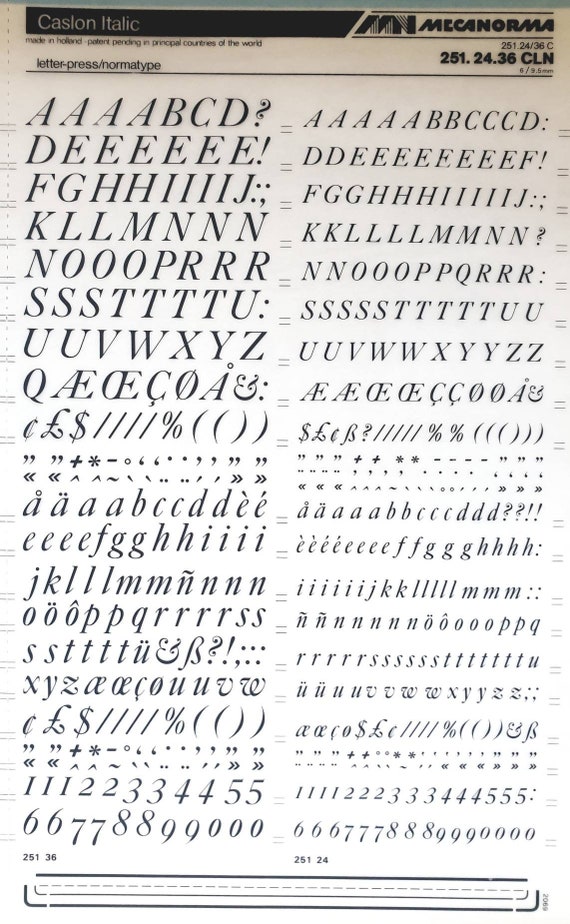 Caslon Italic
MECANORMA
made in holland · patent pending in principal countries of the world
251.24/36 C
251. 24.36 CLN
6 / 9,5mm
letter-press/normatype
A A A A B C D ?
D E E E E E E !
F G H H I I I I J : ;
K L L M N N N
N O O O P R R R
S S S S T T T T U :
U U V W X Y Z
Q Æ Œ Ç Ø Å & :
¢ £ $ / / / / % ( ( ) )
å ä a a b c c d d è é
e e e e f g g h h i i i i
j k l l l m m ñ n n n
o ö ô p p q r r r r s s
s s t t t t ü & ß ? ! , : : :
x y z æ œ ç ø u u v w
¢ £ $ / / / / % ( ( ) )
1 1 1 2 2 3 3 4 4 5 5
6 6 7 7 8 8 9 9 0 0 0
251 36
A A A A A B B C C C D :
D D E E E E E E E E E F !
F G G H H H I I I I I J : ;
K K L L L L M M N N ?
N N O O O P P Q R R R :
S S S S S T T T T T U U
U U V W W X Y Y Z Z
Æ Æ Œ Œ Ç Ç Ø Ø Å &
$ £ ¢ ß ? / / / / / % % ( ( ( ) ) )
å ä a a a b b c c c d d d ? ? ! !
è é é é e e e e f f g g g h h h h :
i i i i i i j k k l l l l l m m m : :
ñ ñ n n n n n n ö ô o o o o p p q
r r r r r s s s s s s t t t t t t t u
ü ü u u v v w w x y y z z ; ;
æ œ ç ø $ £ ¢ / / / / % ( ( ) ) & ß
1 1 1 1 2 2 2 3 3 3 4 4 4 5 5 5 :
6 6 6 7 7 7 8 8 8 9 9 9 0 0 0 0
251 24
2069